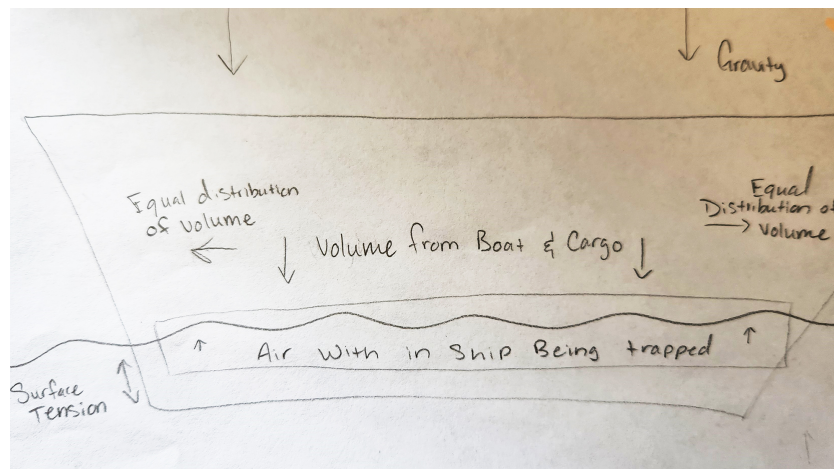 Gravity
Equal distribution
of volume
Equal
Distribution of
Volume
Volume from Boat & Cargo
Air With in Ship Being trapped
Surface
Tension